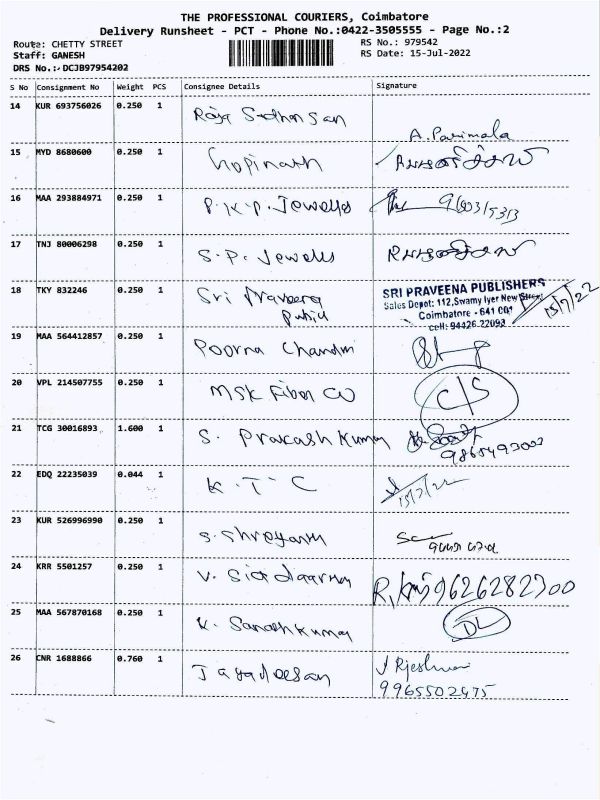 THE PROFESSIONAL COURIERS, Coimbatore
Delivery Runsheet - PCT - Phone No.:0422-3505555 - Page No.:2
Route: CHETTY STREET
Staff: GANESH
DRS No.: DCJB97954202
RS No.: 979542
RS Date: 15-Jul-2022
S No Consignment No Weight PCS Consignee Details Signature
14 KUR 693756026 0.250 1 A. Parimala
15 MYD 8680600 0.250 1 Gopinath
16 MAA 293884971 0.250 1 P.K.P. Jewells
17 TNJ 80006298 0.250 1 S.P. Jewells
18 TKY 832246 0.250 1 Sri
SRI PRAVEENA PUBLISHERS
Sales Depot: 112,Swamy Iyer New Street
Coimbatore - 641 001
cell: 94426 22093
15/7/22
19 MAA 564412857 0.250 1 Poorna
20 VPL 214507755 0.250 1 MSK Fiber CO C/S
21 TCG 30016893 1.600 1 S. Prakash Kumar
9865493002
22 EDQ 22235039 0.044 1 K.T.C 15/7/22
23 KUR 526996990 0.250 1
24 KRR 5501257 0.250 1 V. 9626282700
25 MAA 567870168 0.250 1 K. DL
26 CNR 1688866 0.760 1 Jagadeesan
9965502475